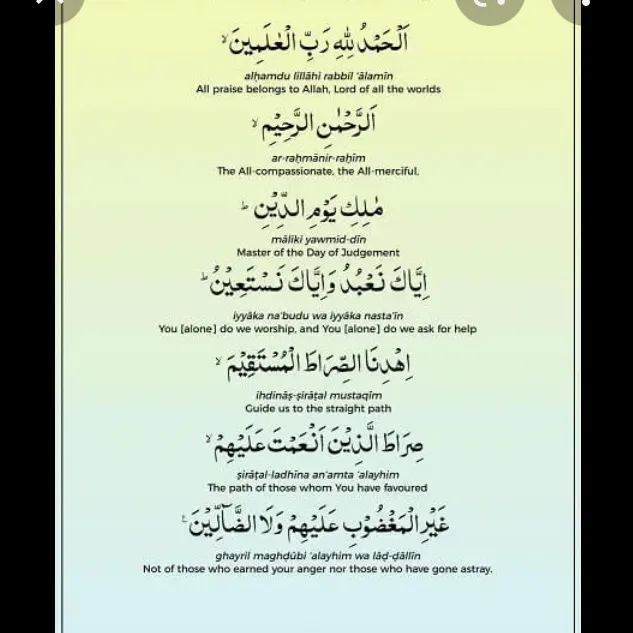 اَلْحَمْدُ لِلّٰهِ رَبِّ الْعٰلَمِيْنَ ۙ
alḥamdu lillāhi rabbil ʿālamīn
All praise belongs to Allah, Lord of all the worlds
اَلرَّحْمٰنِ الرَّحِيْمِ ۙ
ar-raḥmānir-raḥīm
The All-compassionate, the All-merciful,
مٰلِكِ يَوْمِ الدِّيْنِ ۗ
māliki yawmid-dīn
Master of the Day of Judgement
اِيَّاكَ نَعْبُدُ وَاِيَّاكَ نَسْتَعِيْنُ ۗ
iyyāka naʿbudu wa iyyāka nastaʿīn
You [alone] do we worship, and You [alone] do we ask for help
اِهْدِنَا الصِّرَاطَ الْمُسْتَقِيْمَ ۙ
ihdināṣ-ṣirāṭal mustaqīm
Guide us to the straight path
صِرَاطَ الَّذِيْنَ اَنْعَمْتَ عَلَيْهِمْ ۙ
ṣirāṭal-ladhīna anʿamta ʿalayhim
The path of those whom You have favoured
غَيْرِ الْمَغْضُوْبِ عَلَيْهِمْ وَلَا الضَّآلِّيْنَ ۚ
ghayril maghḍūbi ʿalayhim wa lāḍ-ḍāllīn
Not of those who earned your anger nor those who have gone astray.